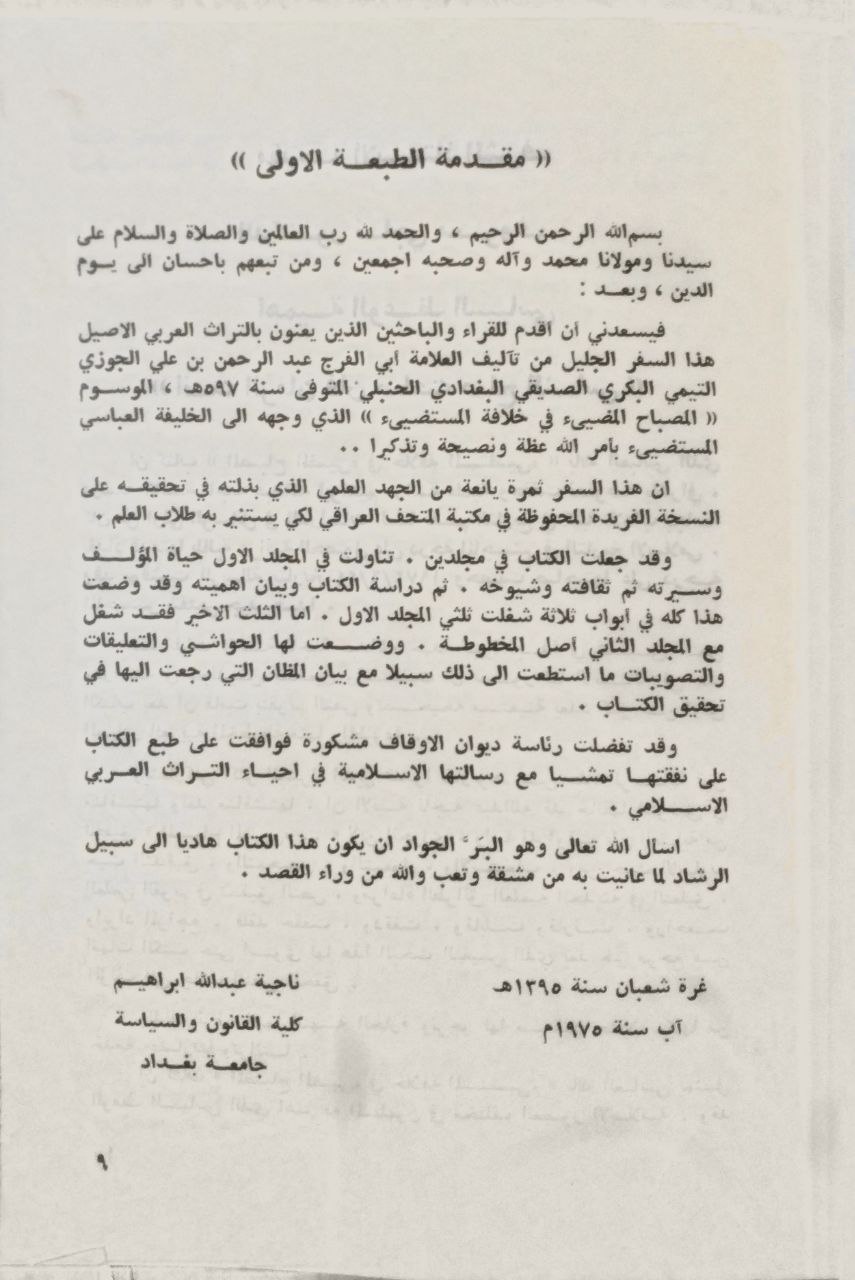 (( مقـدمة الطبعـة الاولى ))
بسم الله الرحمن الرحيم ، والحمد لله رب العالمين والصلاة والسلام على
سيدنا ومولانا محمد وآله وصحبه اجمعين ، ومن تبعهم باحسان الى يـوم
الدين ، وبعـد :
فيسعدني أن أقدم للقراء والباحثين الذين يعنون بالتراث العربي الاصيل
هذا السفر الجليل من تآليف العلامة أبي الفرج عبد الرحمن بن علي الجوزي
التيمي البكري الصديقي البغدادي الحنبلي المتوفى سنة ٥٩٧هـ ، الموسـوم
(( المصباح المضييء في خلافة المستضييء )) الذي وجهه الى الخليفة العباسي
المستضييء بأمر الله عظة ونصيحة وتذكيرا ..
ان هذا السفر ثمرة يانعة من الجهد العلمي الذي بذلته في تحقيقـه على
النسخة الفريدة المحفوظة في مكتبة المتحف العراقي لكي يستنير به طلاب العلم .
وقد جعلت الكتاب في مجلدين . تناولت في المجلد الاول حياة المؤلـف
وسـيرته ثم ثقافته وشيوخه . ثم دراسة الكتاب وبيان اهميته وقد وضعت
هذا كله في أبواب ثلاثة شغلت ثلثي المجلد الاول . اما الثلث الاخير فقـد شغل
مع المجلد الثاني أصل المخطوطـة . ووضـعت لها الحواشـي والتعليقات
والتصويبات ما استطعت الى ذلك سبيلا مع بيان المظان التي رجعت اليها في
تحقيق الكتـاب .
وقد تفضلت رئاسة ديوان الاوقاف مشكورة فوافقت على طبع الكتاب
على نفقتهـا تمشـيا مع رسالتها الاسـلامية في احياء التـراث العـربي
الاسـلامي .
اسأل الله تعالى وهو البَرّ الجواد ان يكون هذا الكتاب هاديا الى سبيل
الرشاد لما عانيت به من مشقة وتعب والله من وراء القصد .
غرة شعبان سنة ١٣٩٥هـ
ناجية عبدالله ابراهيـم
آب سنة ١٩٧٥م
كلية القانون والسياسة
جامعـة بغـداد
٩